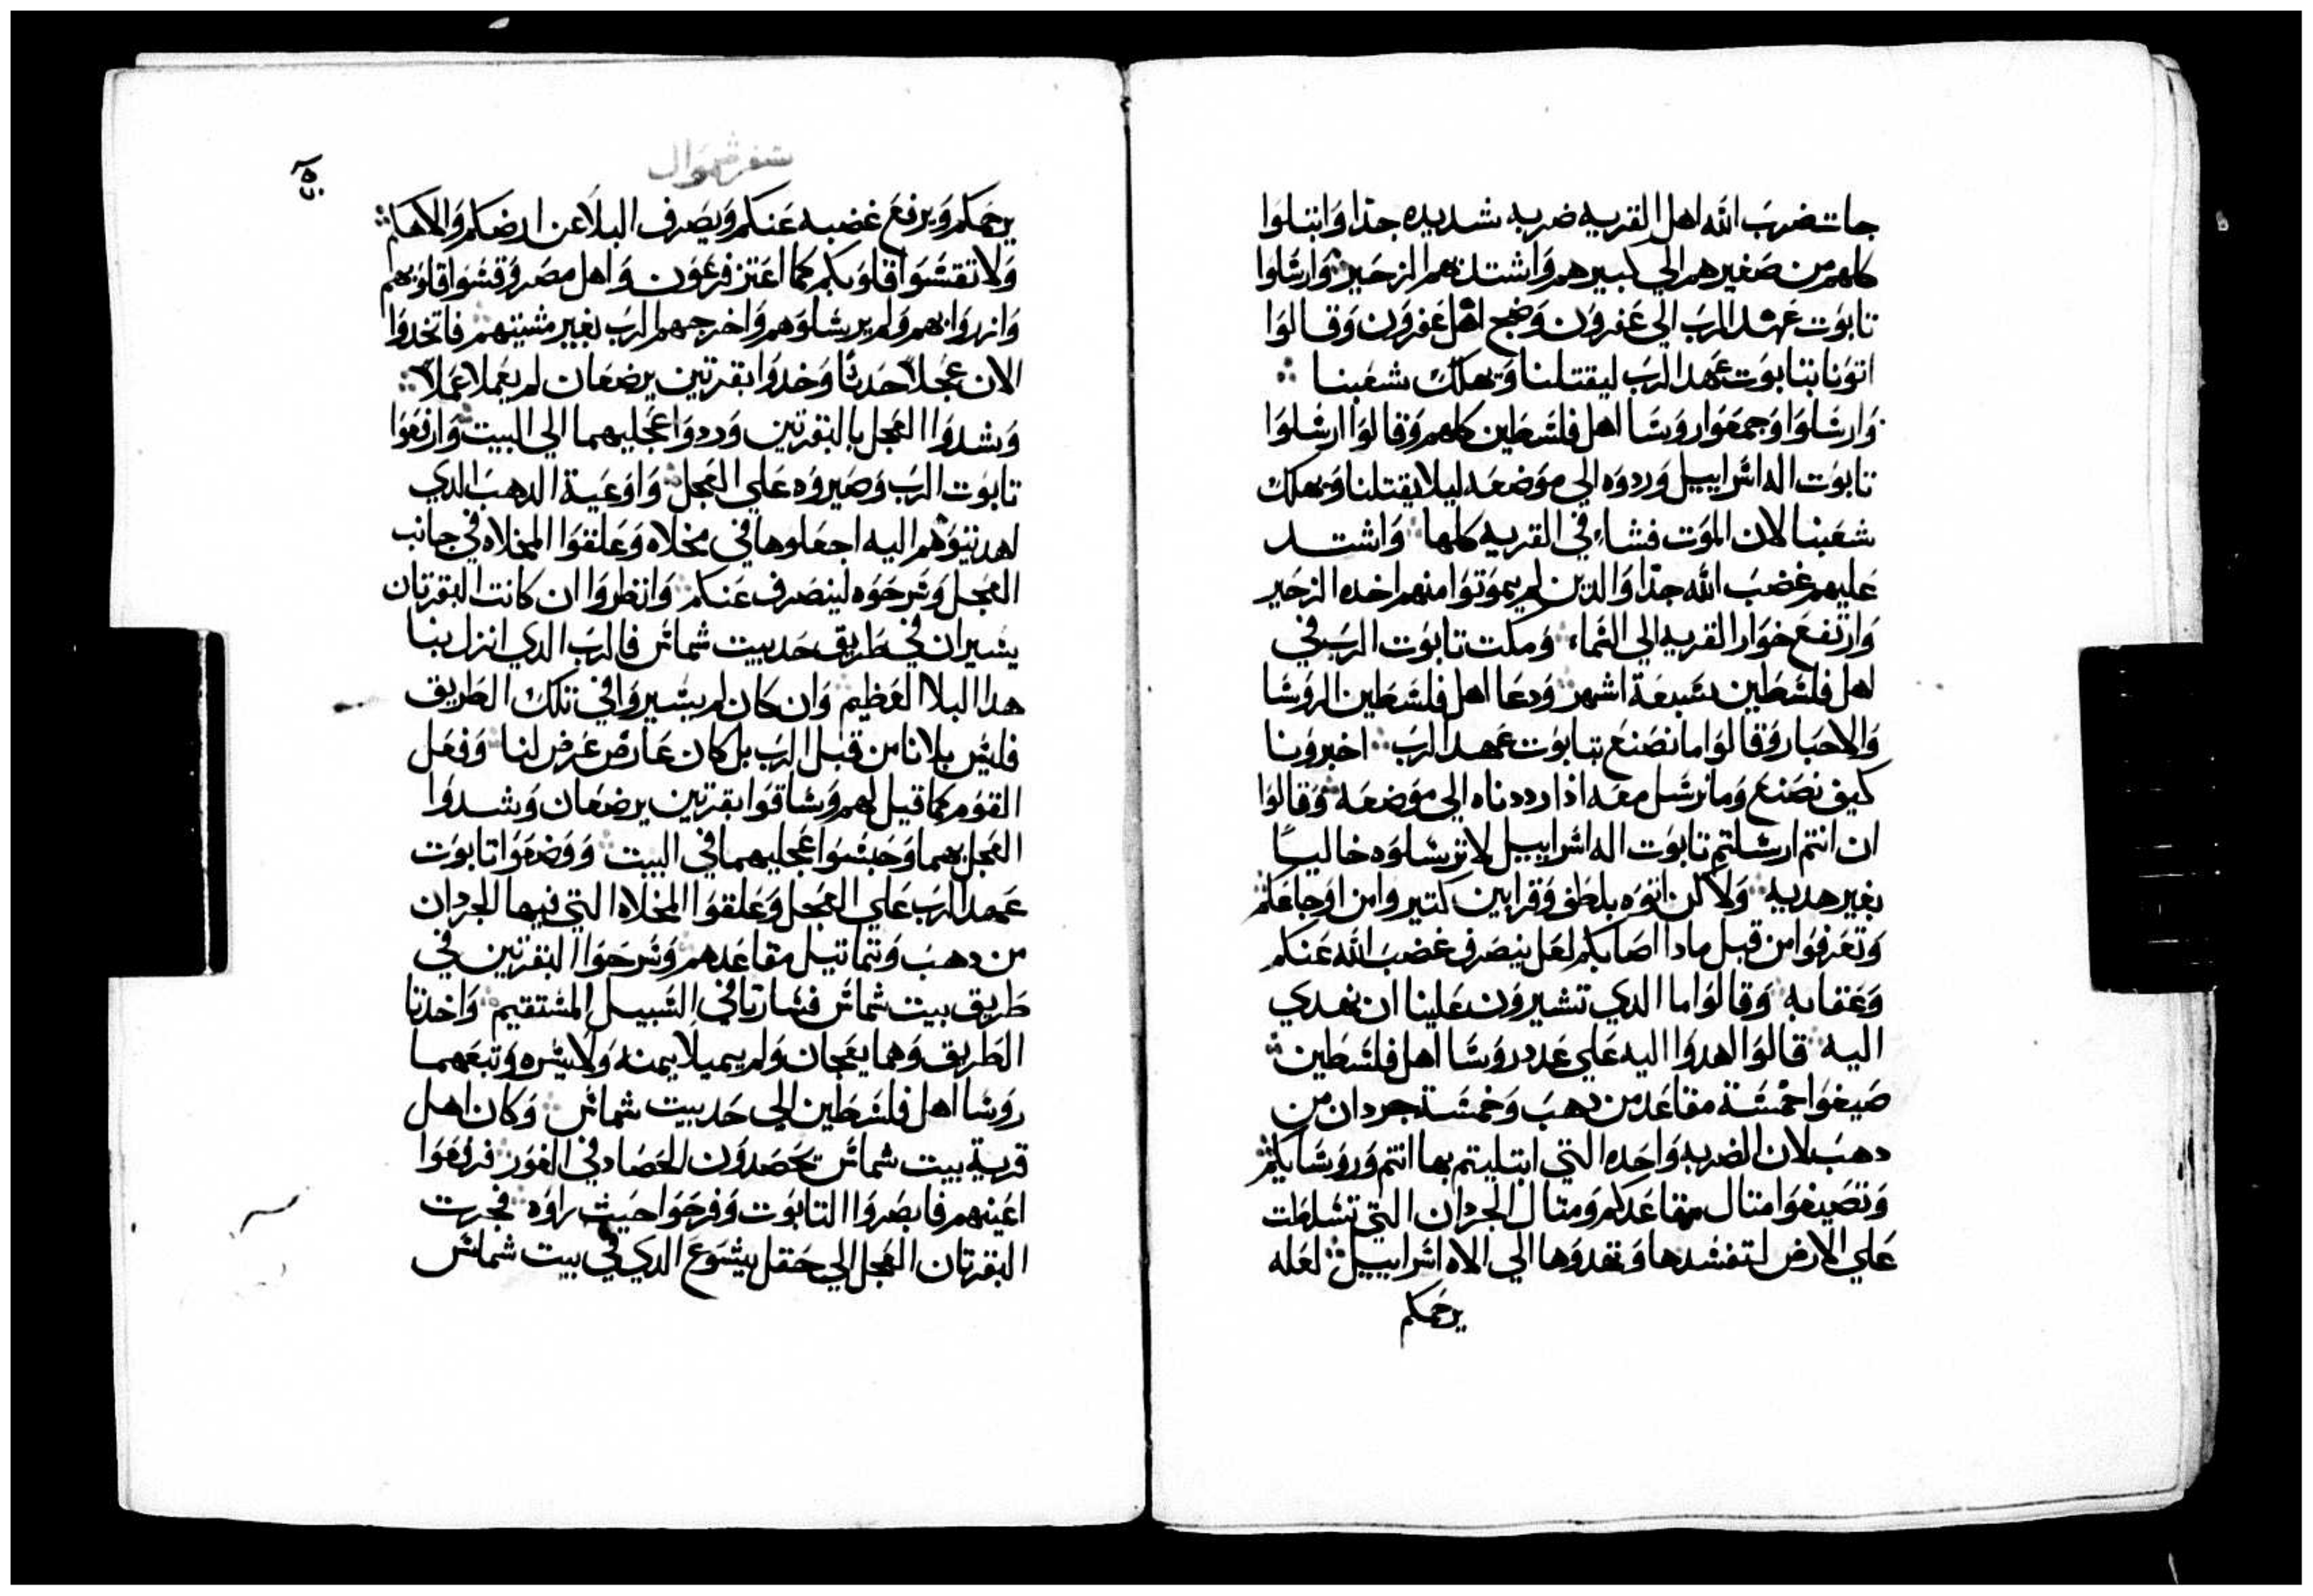 جات ضرب الله اهل القريه ضربه شديده جدا وابتلوا
كلهم من صغيرهم الي كبيرهم واشتد بهم الزحير وارسلوا
تابوت عهد الرب الي عفرون وضج اهل عفرون وقالوا
اتونا بتابوت عهد الرب ليقتلنا ويهلك شعبنا
وارسلوا وجمعوا روسا اهل فلسطين كلهم وقالوا ارسلوا
تابوت اله اسراييل وردوه الي موضعه ليلا يقتلنا ويهلك
شعبنا لان الموت فشا في القريه كلها واشتد
عليهم غضب الله جدا والدين لم يموتوا منهم اخده الزحير
وارتفع خوار القريه الي السماء ومكت تابوت الرب في
اهل فلسطين سبعة اشهر ودعا اهل فلسطين الروسا
والاحبار وقالوا ما نصنع بتابوت عهد الرب اخبرونا
كيف نصنع وما نرسل معه اذا رددناه الي موضعه وقالوا
ان انتم ارسلتم تابوت اله اسراييل لا ترسلوه خاليا
بغير هديه ولاكن اتوه بلطف وقرابين كتير وامن اوجاعكم
وتعرفوا من قبل مادا اصابكم لعل ينصرف غضب الله عنكم
وعقابه وقالوا ما الدي تشيرون علينا ان نهدي
اليه قالوا اهدوا اليه علي عدد روسا اهل فلسطين
صيغوا خمسة مقاعد من دهب وخمسة جردان من
دهب لان الضربه واحده التي ابتليتم بها انتم وروسايكم
وتصيغوا متال مقاعدكم ومتال الجردان التي تسلطت
علي الارض لتفسدها وتهدوها الي الاه اسراييل لعله
يرحمكم
سفر شموال
يرحمكم ويرفع غضبه عنكم ويصرف البلا عن ارضكم والاهكم
ولا تقسوا قلوبكم كما اعتز فرعون واهل مصر وقسوا قلوبهم
وازدوا بهم ولم يرسلوهم واخرجهم الرب بغير مشيتهم فاتخدوا
الان عجلا حدثا وخدوا بقرتين يرضعان لم يعملا عملا
وشدوا العجل بالبقرتين وردوا عجليهما الي البيت وارفعوا
تابوت الرب وصيروه علي العجل واوعية الدهب الدي
اهديتوهم اليه اجعلوها في مخلاه وعلقوا المخلاه في جانب
العجل وسرحوه لينصرف عنكم وانظروا ان كانت البقرتان
يسيران في طريق حد بيت شماس فالرب الدي انزل بنا
هدا البلا العظيم وان كان لم يسيروا في تلك الطريق
فليس بلانا من قبل الرب بل كان عارض عرض لنا وفعل
القوم كما قيل لهم وساقوا بقرتين يرضعان وشدوا
العجل بهما وحبسوا عجليهما في البيت ووضعوا تابوت
عهد الرب علي العجل وعلقوا المخلاه التي فيها الجردان
من دهب وتماتيل مقاعدهم وسرحوا البقرتين في
طريق بيت شماس فسارتا في السبيل المستقيم واخدتا
الطريق وهما يعجان ولم يميلا يمنه ولا يسره وتبعهما
روسا اهل فلسطين الي حد بيت شماس وكان اهل
قرية بيت شماس يحصدون الحصاد في الغور فرفعوا
اعينهم فابصروا التابوت وفرحوا حيث راوه فجرت
البقرتان العجل الي حقل يشوع الدي في بيت شماس